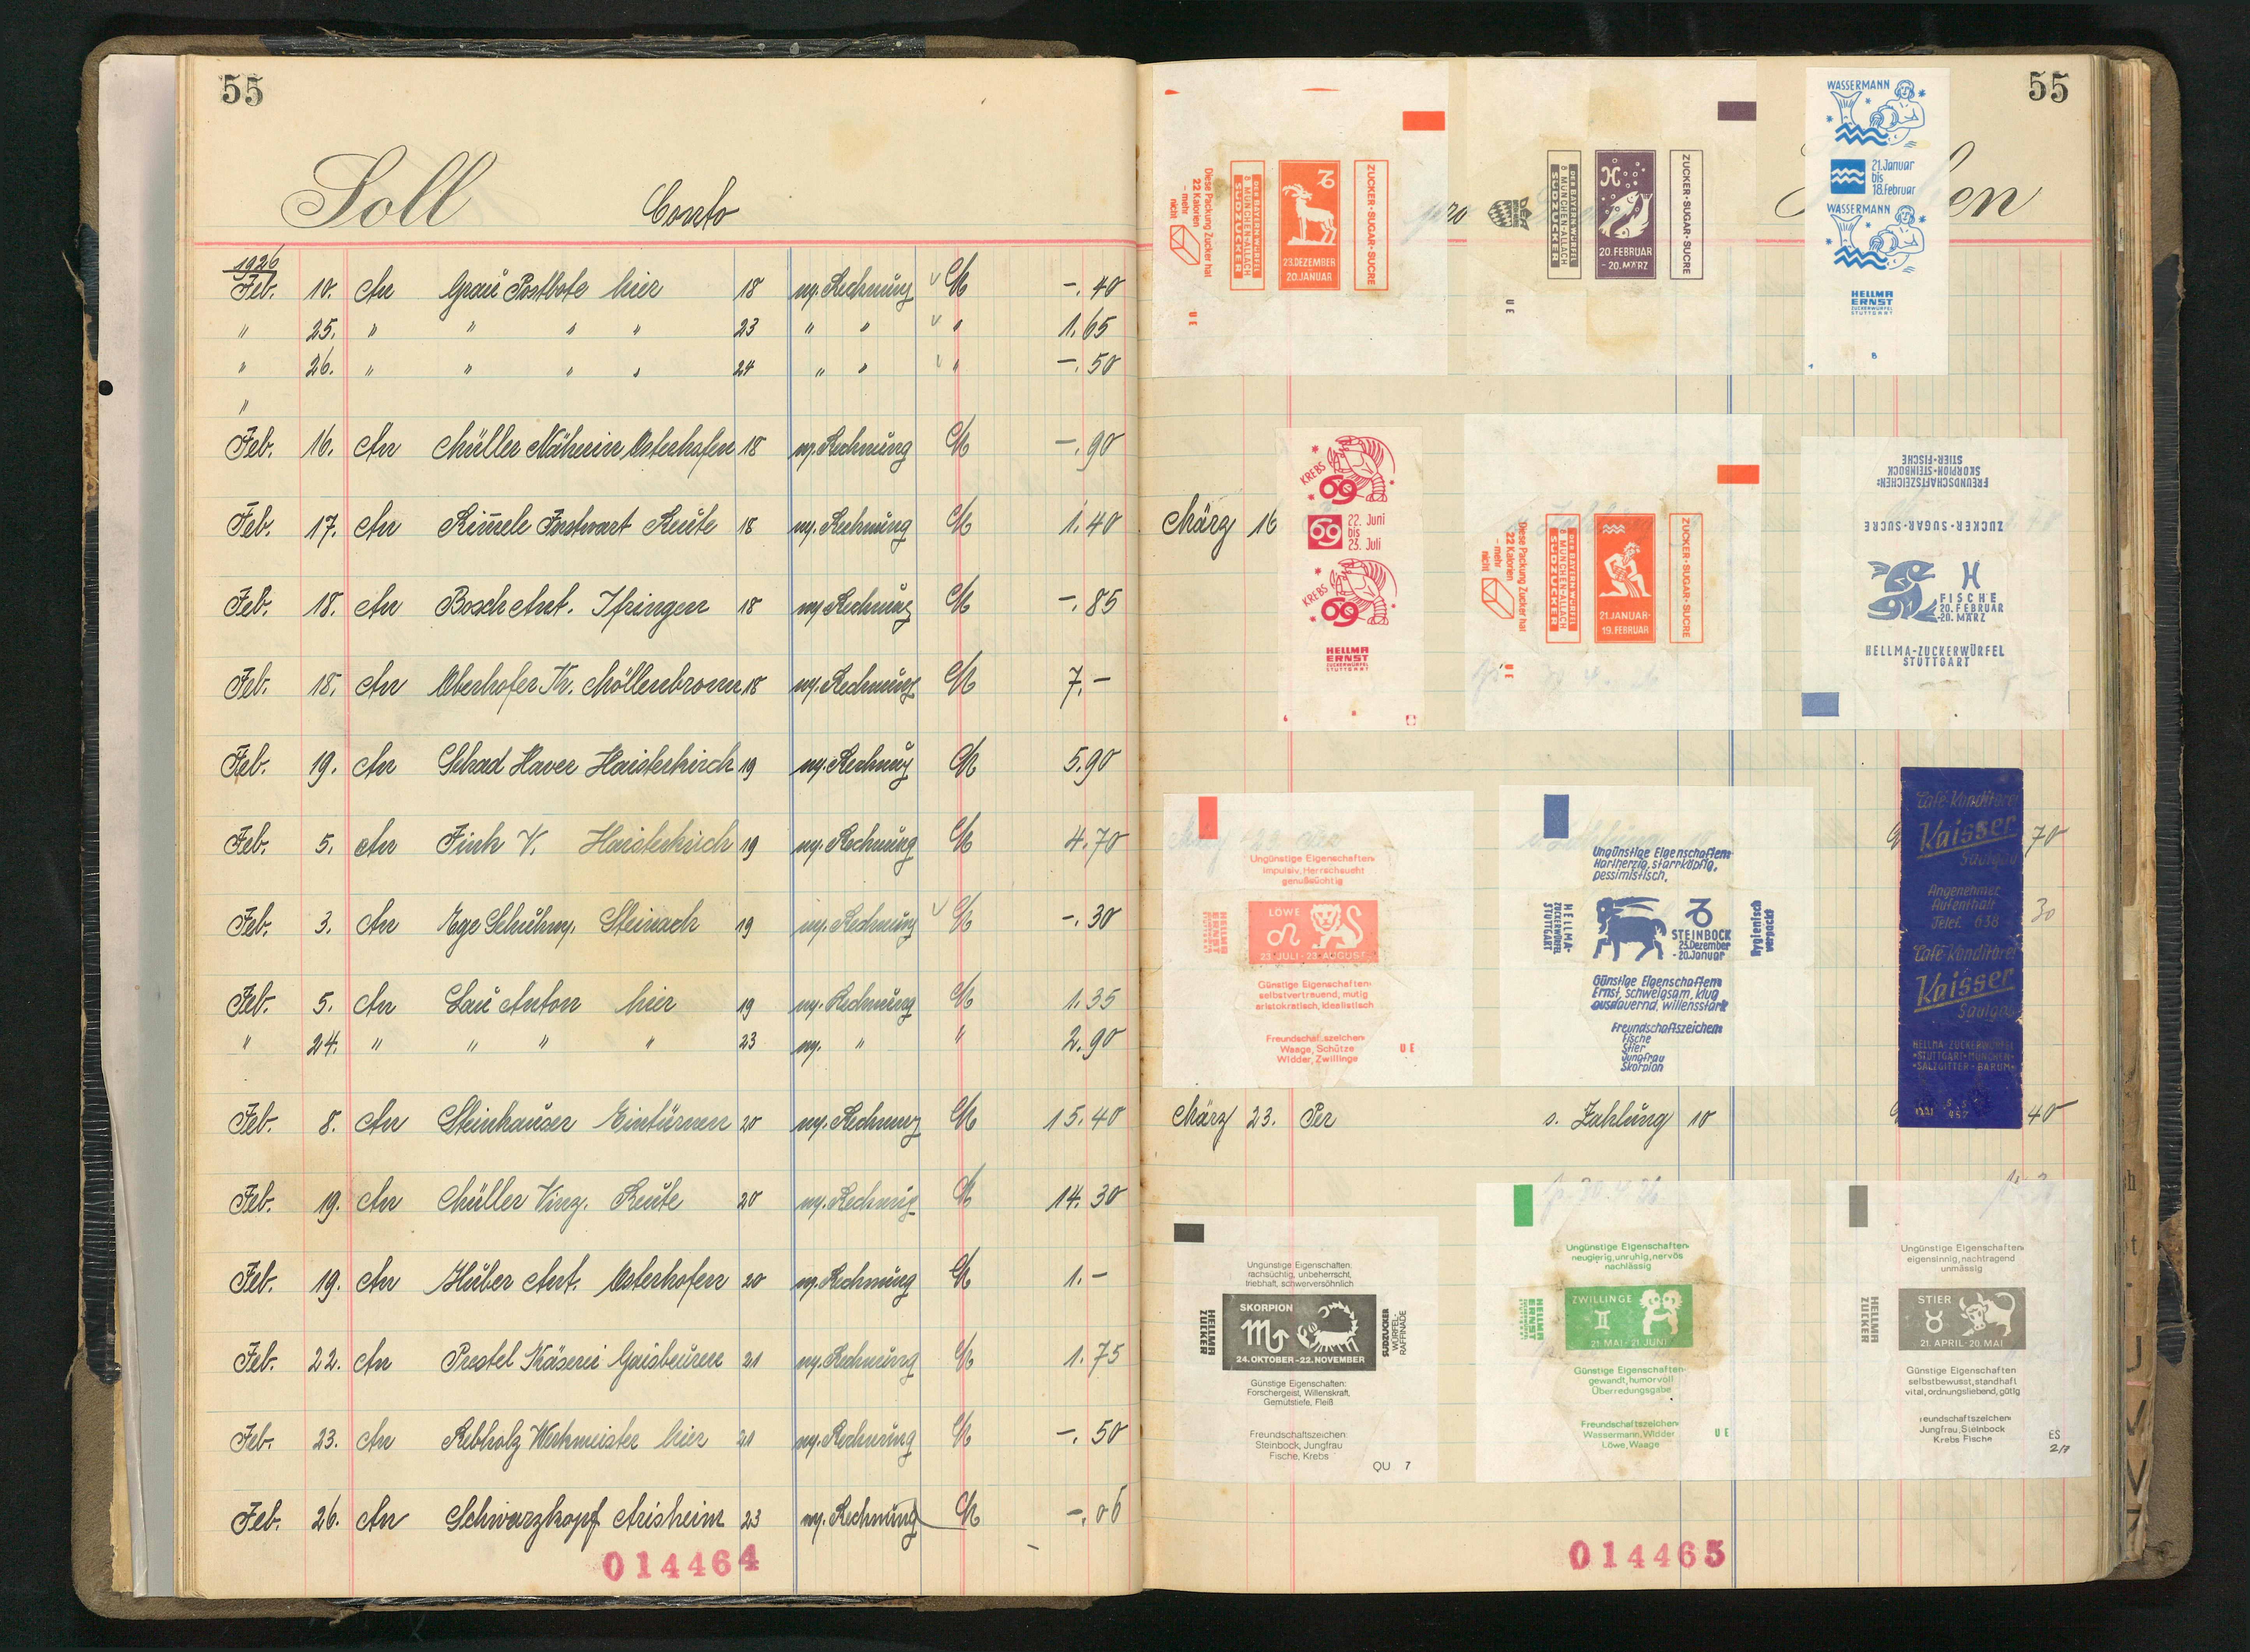 55
Soll Conto
1926
Feb. 10. An Grau Postbote hier 18 m. Rechnung M -.40
" 25. " " " " 23 " " " 1.65
" 26. " " " " 24 " " " -.50
"
Feb. 16. An Müller Näherin Osterhofen 18 m. Rechnung M -.90
Feb. 17. An Kimele Forstwart Reute 18 m. Rechnung M 1.40
Feb. 18. An Bosch Ant. Ifringen 18 m. Rechnung M -.85
Feb. 18. An Oberhofer Möllenbronn 18 m. Rechnung M 7.-
Feb. 19. An Schad Xaver Haisterkirch 19 m. Rechnung M 5.90
Feb. 5. An Fink V. Haisterkirch 19 m. Rechnung M 4.70
Feb. 3. An Ege Schuhm. Steinach 19 m. Rechnung M -.30
Feb. 5. An Lau Anton hier 19 m. Rechnung M 1.35
" 24. " " " " 23 m. " " 2.90
Feb. 8. An Steinhauser Eintürnen 20 m. Rechnung M 15.40
Feb. 19. An Müller Vinz. Reute 20 m. Rechnung M 14.30
Feb. 19. An Huber Ant. Osterhofen 20 m. Rechnung M 1.-
Feb. 22. An Prestel Käserei Gaisbeuren 21 m. Rechnung M 1.75
Feb. 23. An Rebholz Werkmeister hier 21 m. Rechnung M -.50
Feb. 26. An Schwarzkopf Arisheim 23 m. Rechnung M -.06
014464
55
Diese Packung Zucker hat
22 Kalorien
- mehr
nicht
DER BAYERNWÜRFEL
MÜNCHEN-ALLACH
SÜDZUCKER
23.DEZEMBER
20.JANUAR
ZUCKER·SUGAR·SUCRE
UE
DER BAYERNWÜRFEL
MÜNCHEN-ALLACH
SÜDZUCKER
20.FEBRUAR
-20.MÄRZ
ZUCKER·SUGAR·SUCRE
UE
WASSERMANN
21.Januar
bis
18.Februar
WASSERMANN
HELLMA
ERNST
ZUCKERWÜRFEL
STUTTGART
März 16
KREBS
69
69
22. Juni
bis
23. Juli
KREBS
69
HELLMA
ERNST
ZUCKERWÜRFEL
STUTTGART
Diese Packung Zucker hat
22 Kalorien
- mehr
nicht
DER BAYERNWÜRFEL
MÜNCHEN-ALLACH
SÜDZUCKER
21.JANUAR-
19.FEBRUAR
ZUCKER·SUGAR·SUCRE
UE
FREUNDSCHAFTSZEICHEN:
SKORPION·STEINBOCK
STIER·FISCHE
ZUCKER·SUGAR·SUCRE
FISCHE
20. FEBRUAR
-20. MÄRZ
HELLMA-ZUCKERWÜRFEL
STUTTGART
Ungünstige Eigenschaften:
Impulsiv, Herrschsucht
genußsüchtig
HELLMA
ERNST
LÖWE
23.JULI-23.AUGUST
Günstige Eigenschaften:
selbstvertrauend, mutig
aristokratisch, idealistisch
Freundschaftszeichen:
Waage, Schütze
Widder, Zwillinge
UE
Ungünstige Eigenschaften:
Hartherzig, starrköpfig,
pessimistisch.
HELLMA-
ZUCKERWÜRFEL
STUTTGART
STEINBOCK
23.Dezember
-20.Januar
Hygienisch
verpackt
Günstige Eigenschaften:
Ernst, schweigsam, klug
ausdauernd, willensstark
Freundschaftszeichen:
Fische
Stier
Jungfrau
Skorpion
Café-Konditorei
Kaisser
Saulgau
Angenehmer
Aufenthalt
Telef. 638
Café-Konditorei
Kaisser
Saulgau
HELLMA-ZUCKERWÜRFEL
·STUTTGART·MÜNCHEN·
·SALZGITTER-BARUM·
70
30
März 23. Per s. Zahlung 10 40
Ungünstige Eigenschaften:
rachsüchtig, unbeherrscht,
triebhaft, schwerversöhnlich
HELLMA
ZUCKER
SKORPION
24.OKTOBER-22.NOVEMBER
SÜDZUCKER
WÜRFEL-
RAFFINADE
Günstige Eigenschaften:
Forschergeist, Willenskraft,
Gemütstiefe, Fleiß
Freundschaftszeichen:
Steinbock, Jungfrau
Fische, Krebs
QU 7
Ungünstige Eigenschaften:
neugierig, unruhig, nervös
nachlässig
HELLMA
ERNST
ZWILLINGE
21.MAI-21.JUNI
Günstige Eigenschaften:
gewandt, humorvoll
Überredungsgabe
Freundschaftszeichen:
Wassermann, Widder
Löwe, Waage
UE
Ungünstige Eigenschaften:
eigensinnig, nachtragend
unmässig
HELLMA
ZUCKER
STIER
21.APRIL-20.MAI
Günstige Eigenschaften
selbstbewusst, standhaft
vital, ordnungsliebend, gütig
reundschaftszeichen:
Jungfrau, Steinbock
Krebs Fische
ES
014465